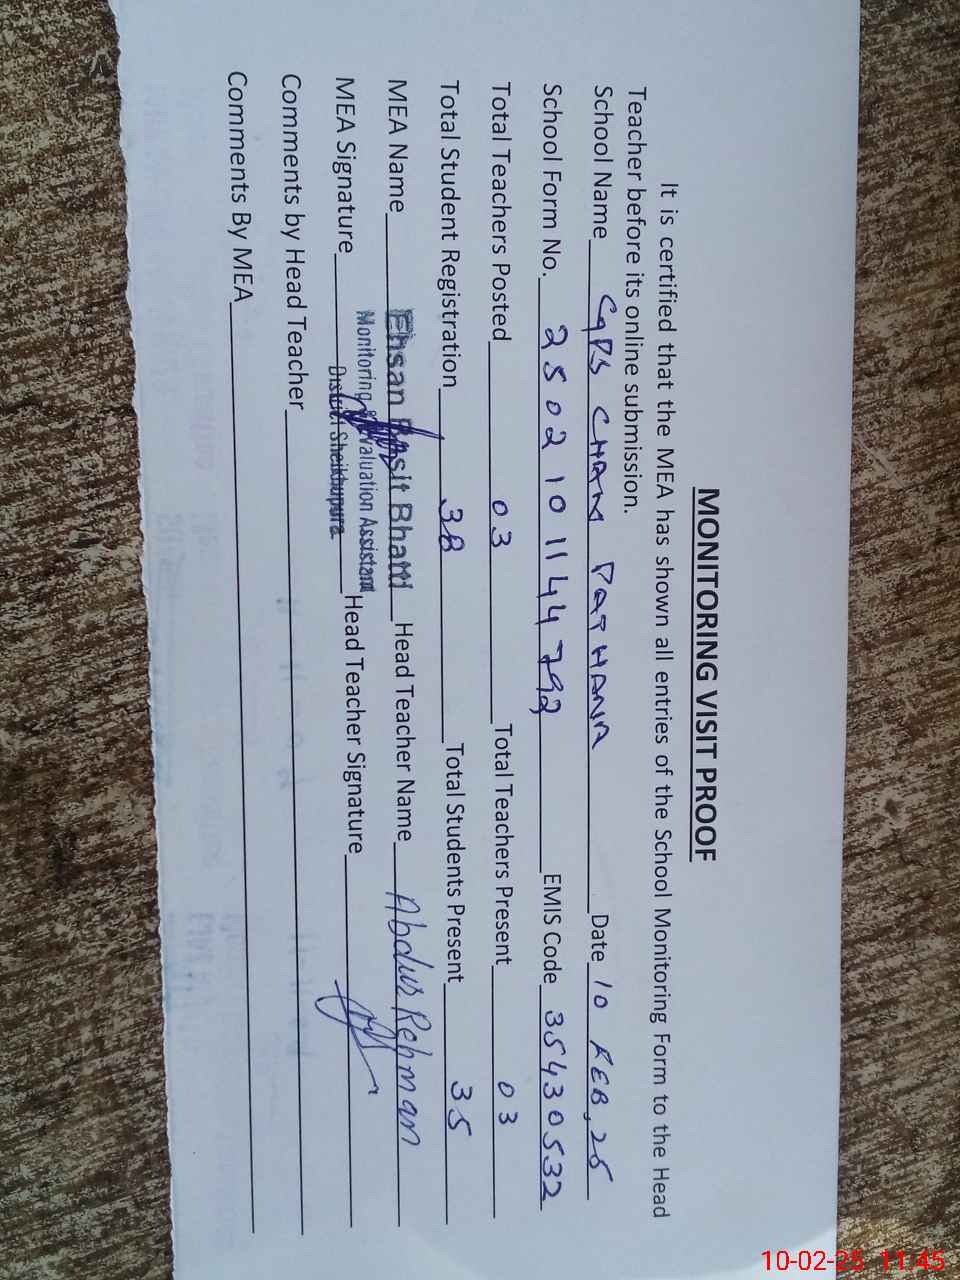 MONITORING VISIT PROOF
It is certified that the MEA has shown all entries of the School Monitoring Form to the Head
Teacher before its online submission.
School Name GPS CHAK PATHANA Date 10 FEB, 25
School Form No. 2502101144792 EMIS Code 35430532
Total Teachers Posted 03 Total Teachers Present 03
Total Student Registration 38 Total Students Present 35
MEA Name Ehsan Basit Bhatti Head Teacher Name Abdur Rehman
Monitoring & Evaluation Assistant
MEA Signature District Sheikhupura Head Teacher Signature
Comments by Head Teacher
Comments By MEA
10-02-25 11:45